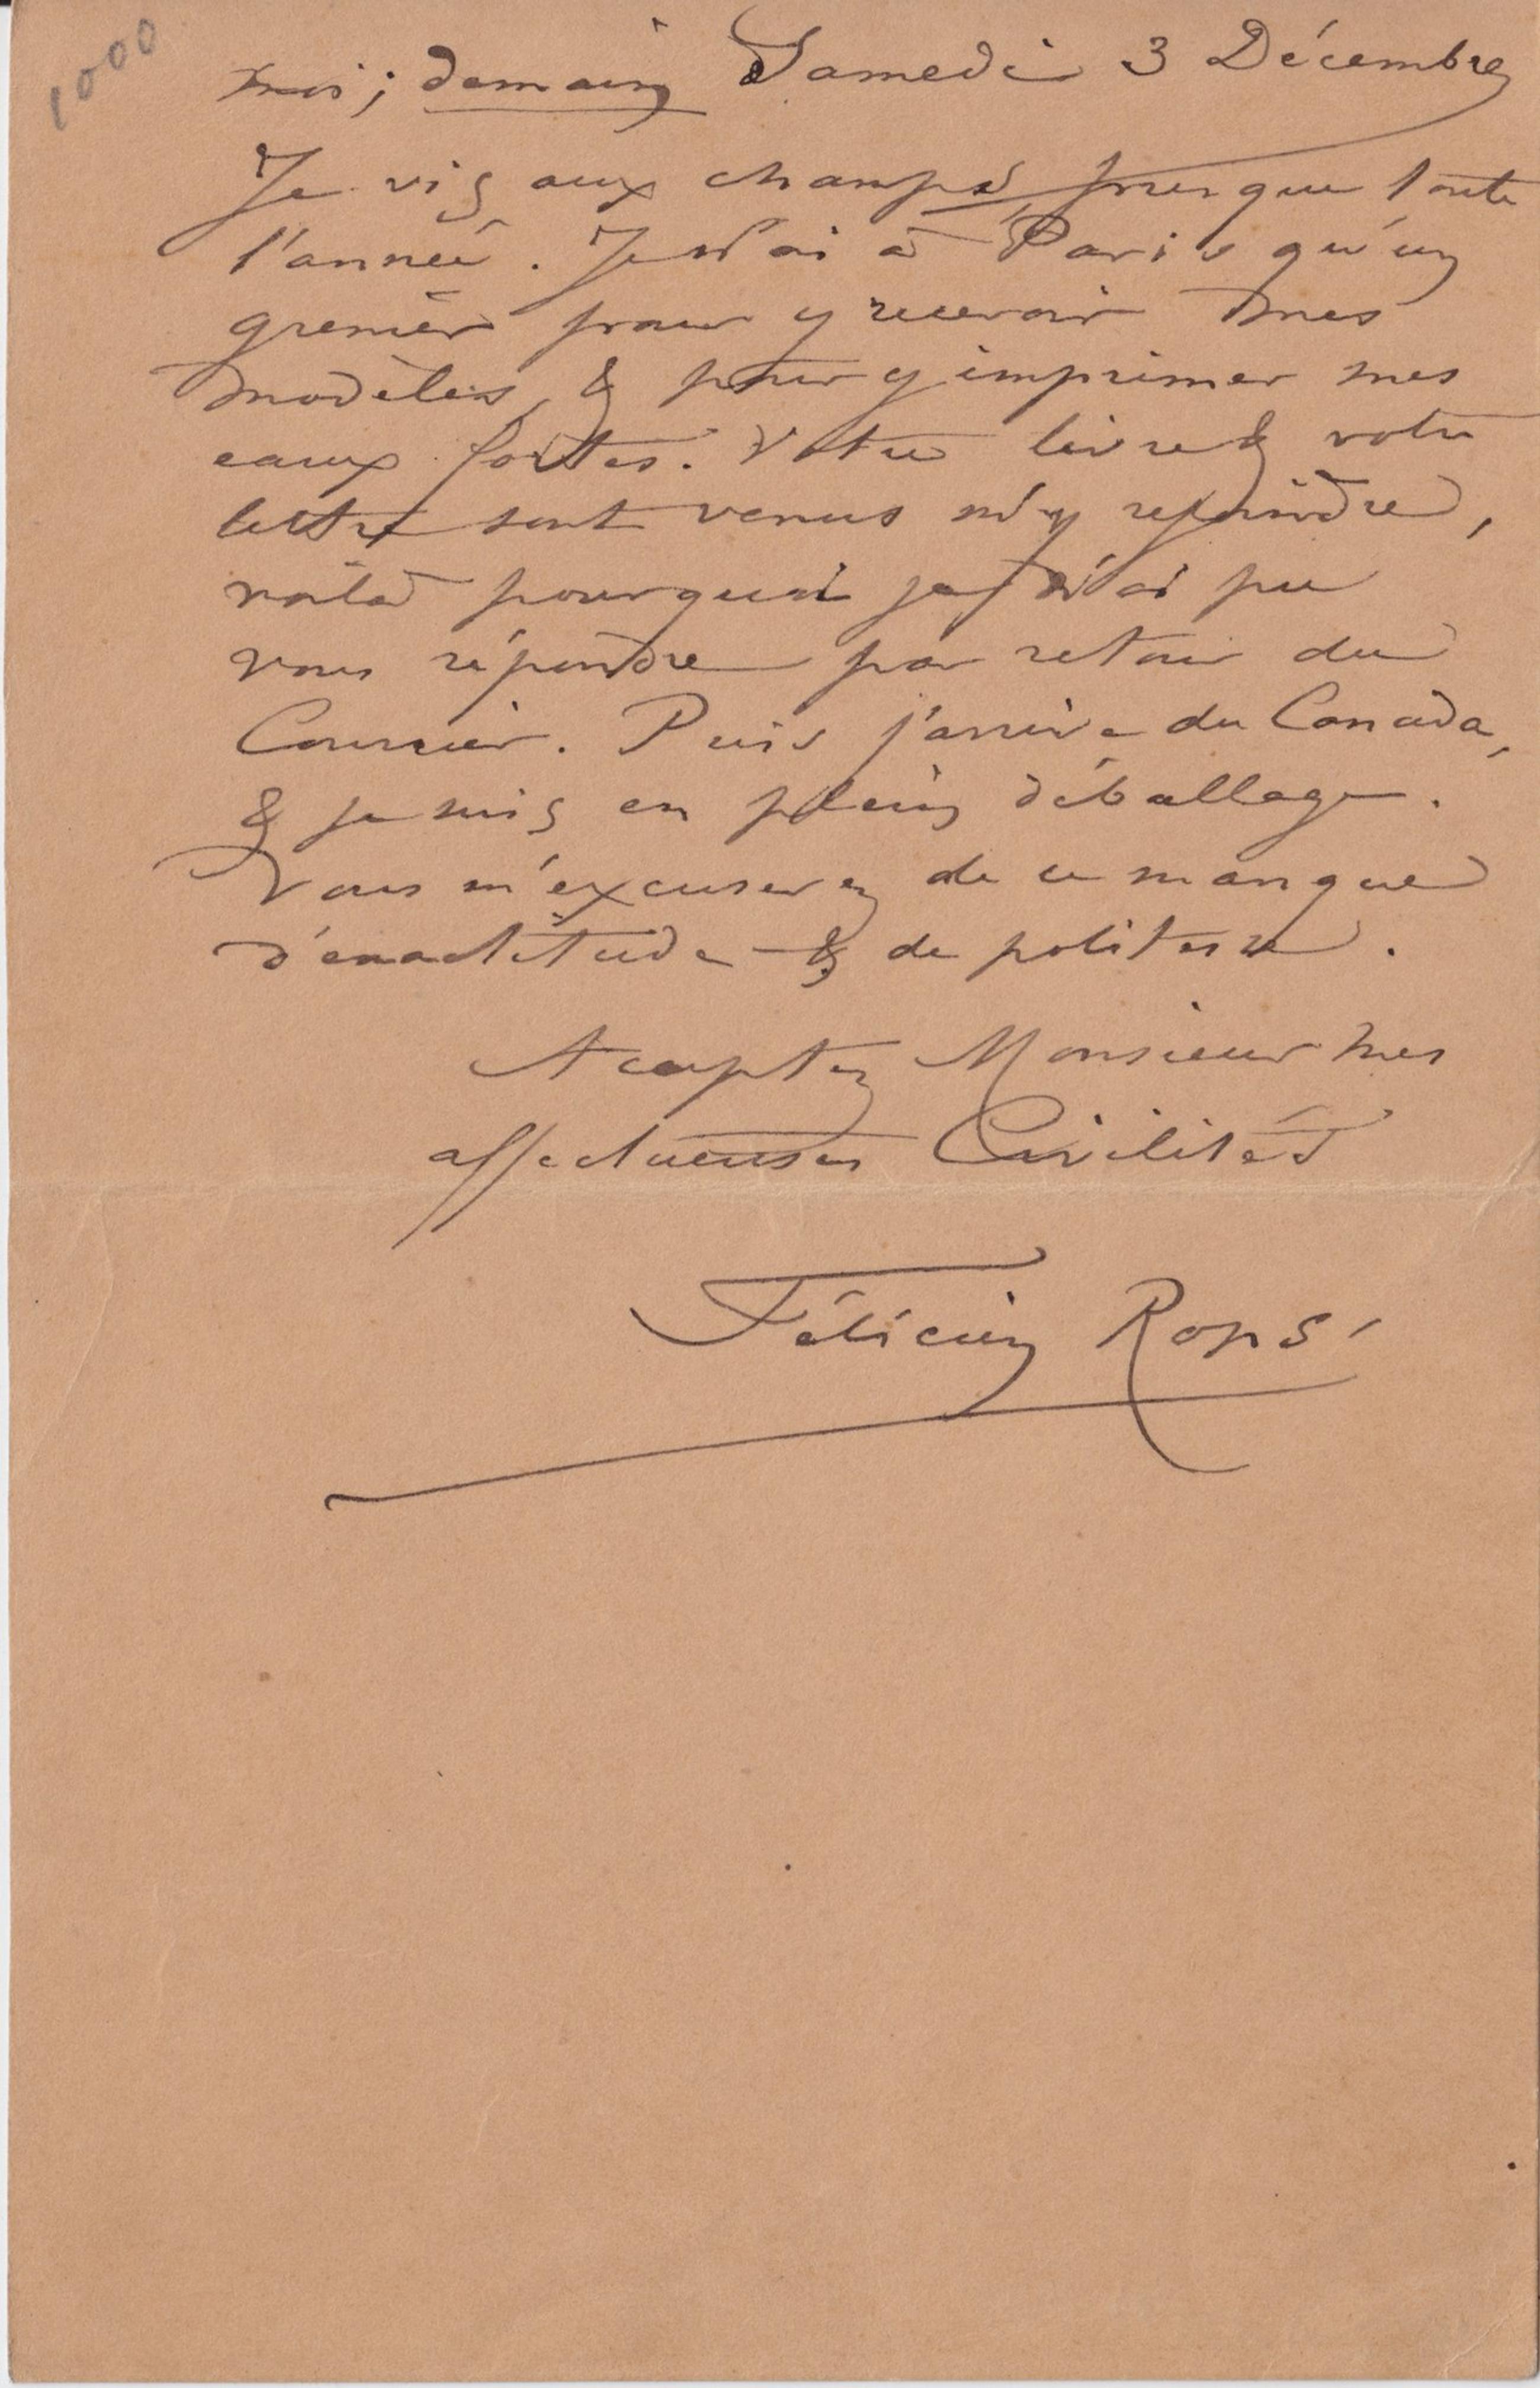 1000
moi ; demain Samedi 3 Décembre
Je vis aux champs presque toute
l'année. Je n'ai à Paris qu'un
grenier pour y recevoir mes
modèles, & pour y imprimer mes
eaux fortes. Votre livre & votre
lettre sont venus m'y rejoindre,
voilà pourquoi je n'ai pu
vous répondre par retour du
Courrier. Puis j'arrive du Canada,
& je suis en plein déballage.
Vous m'excuserez de ce manque
d'exactitude & de politesse.
Acceptez Monsieur mes
affectueuses Civilités
Félicien Rops